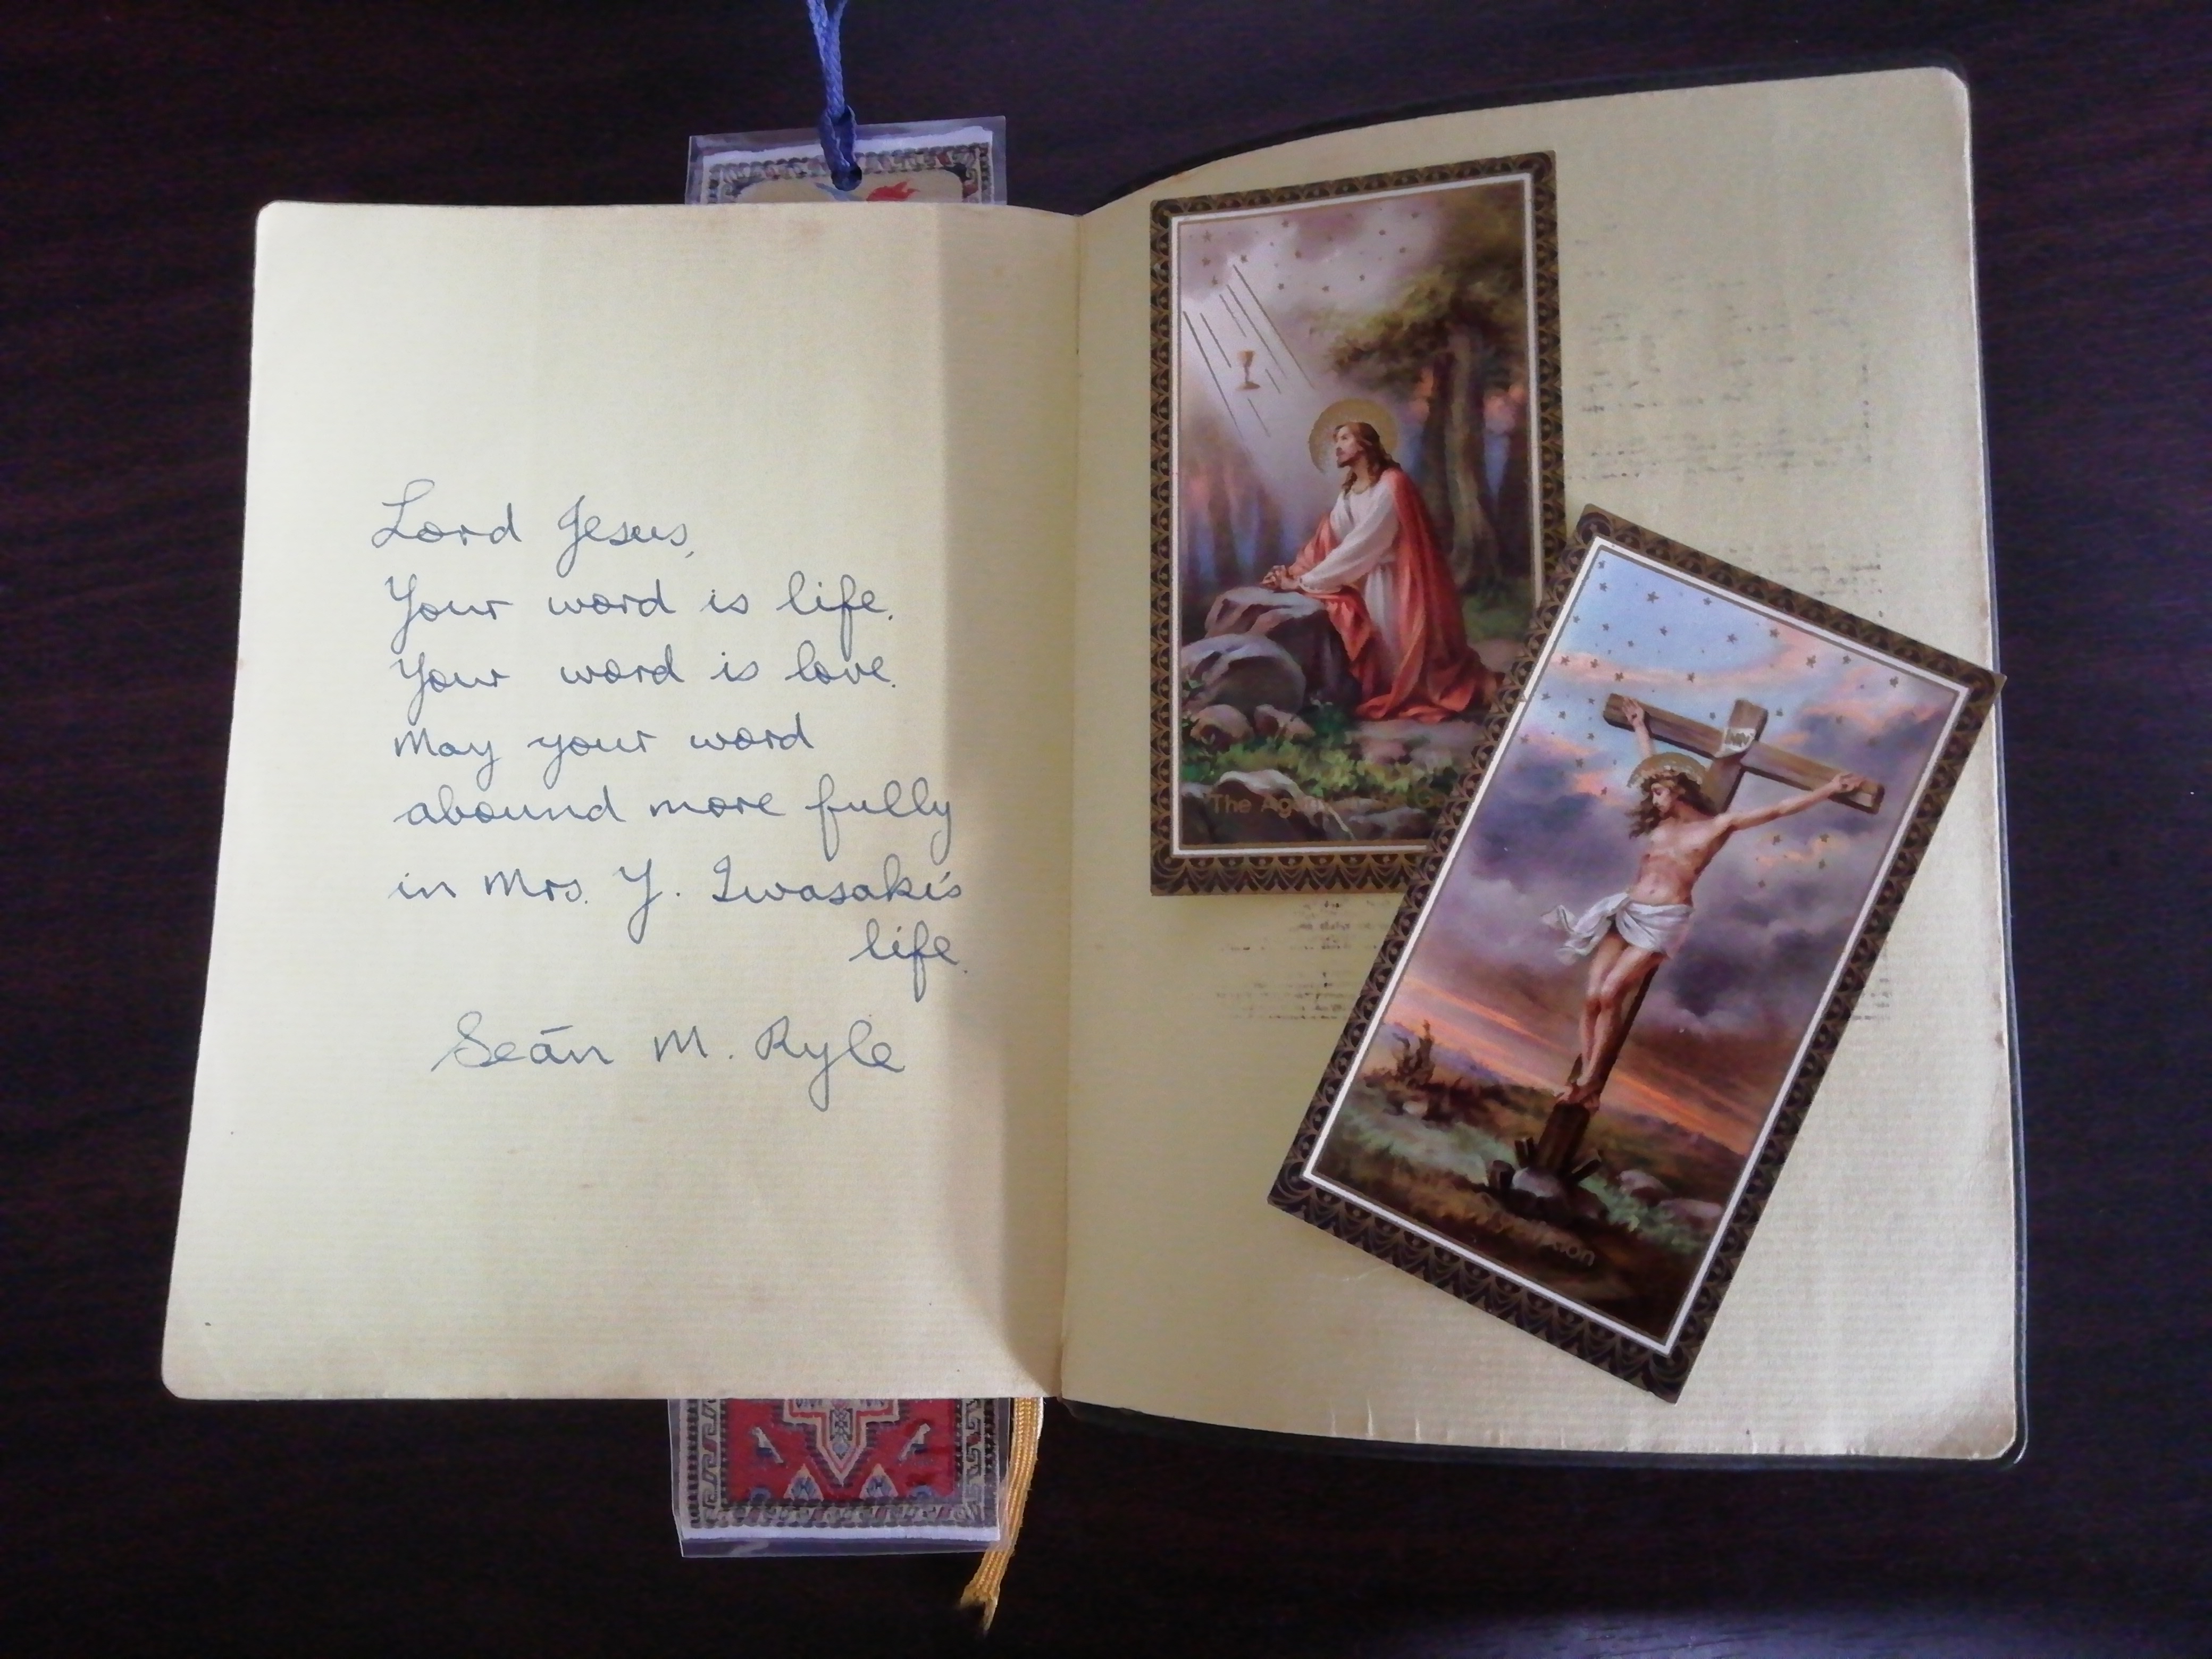 Lord Jesus,
Your word is life.
Your word is love.
May your word
abound more fully
in Mrs. Y. Iwasaki's
life.
Seān M. Ryle
The
INRI